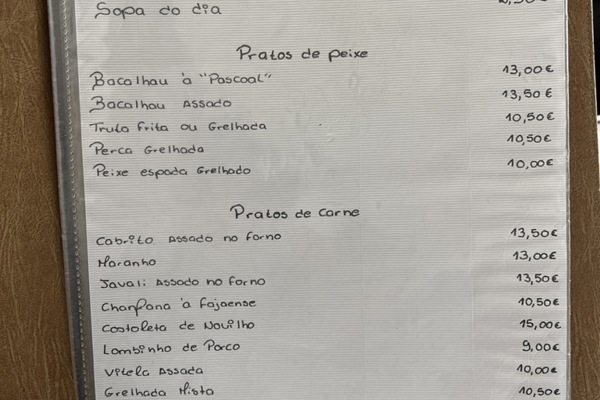 Sopa do dia
Pratos de peixe
Bacalhau à "Pascoal" 13,00€
Bacalhau Assado 13,50€
Truta frita ou Grelhada 10,50€
Perca Grelhada 10,50€
Peixe espada Grelhado 10,00€
Pratos de carne
Cabrito Assado no forno 13,50€
Maranho 13,00€
Javali Assado no forno 13,50€
Chanfana à fajaense 10,50€
Costoleta de Novilho 15,00€
Lombinho de Porco 9,00€
Vitela Assada 10,00€
Grelhada Mista 10,50€